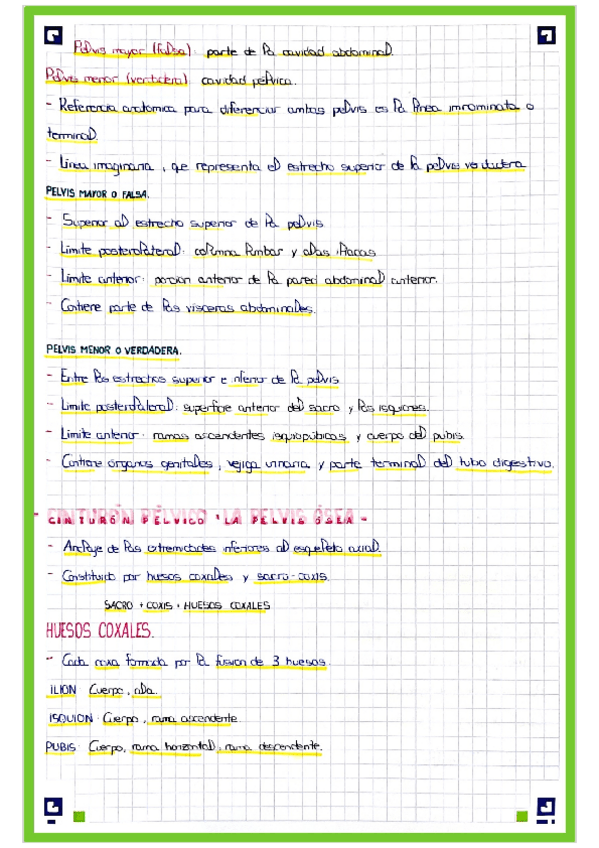 Pelvis mayor (falsa): parte de la cavidad abdominal.
Pelvis menor (verdadera): cavidad pélvica.
- Referencia anatómica para diferenciar ambas pelvis es la línea innominata o
terminal.
- Línea imaginaria, que representa el estrecho superior de la pelvis verdadera
PELVIS MAYOR O FALSA.
- Superior al estrecho superior de la pelvis.
- Límite posterolateral: columna lumbar y alas ilíacas
- Límite anterior: porción anterior de la pared abdominal anterior.
- Contiene parte de las vísceras abdominales.
PELVIS MENOR O VERDADERA.
- Entre los estrechos superior e inferior de la pelvis
- Límite posterolateral: superficie anterior del sacro y los isquiones.
- Límite anterior: ramas ascendentes isquiopúbicas y cuerpo del pubis.
- Contiene órganos genitales, vejiga urinaria y parte terminal del tubo digestivo.
- CINTURÓN PÉLVICO "LA PELVIS ÓSEA -
- Anclaje de las extremidades inferiores al esqueleto axial.
- Constituido por huesos coxales y sacro-coxis.
SACRO + COXIS + HUESOS COXALES
HUESOS COXALES.
- Cada coxa formada por la fusión de 3 huesos.
ILION: Cuerpo, ala.
ISQUION: Cuerpo, rama ascendente.
PUBIS: Cuerpo, rama horizontal, rama descendente.